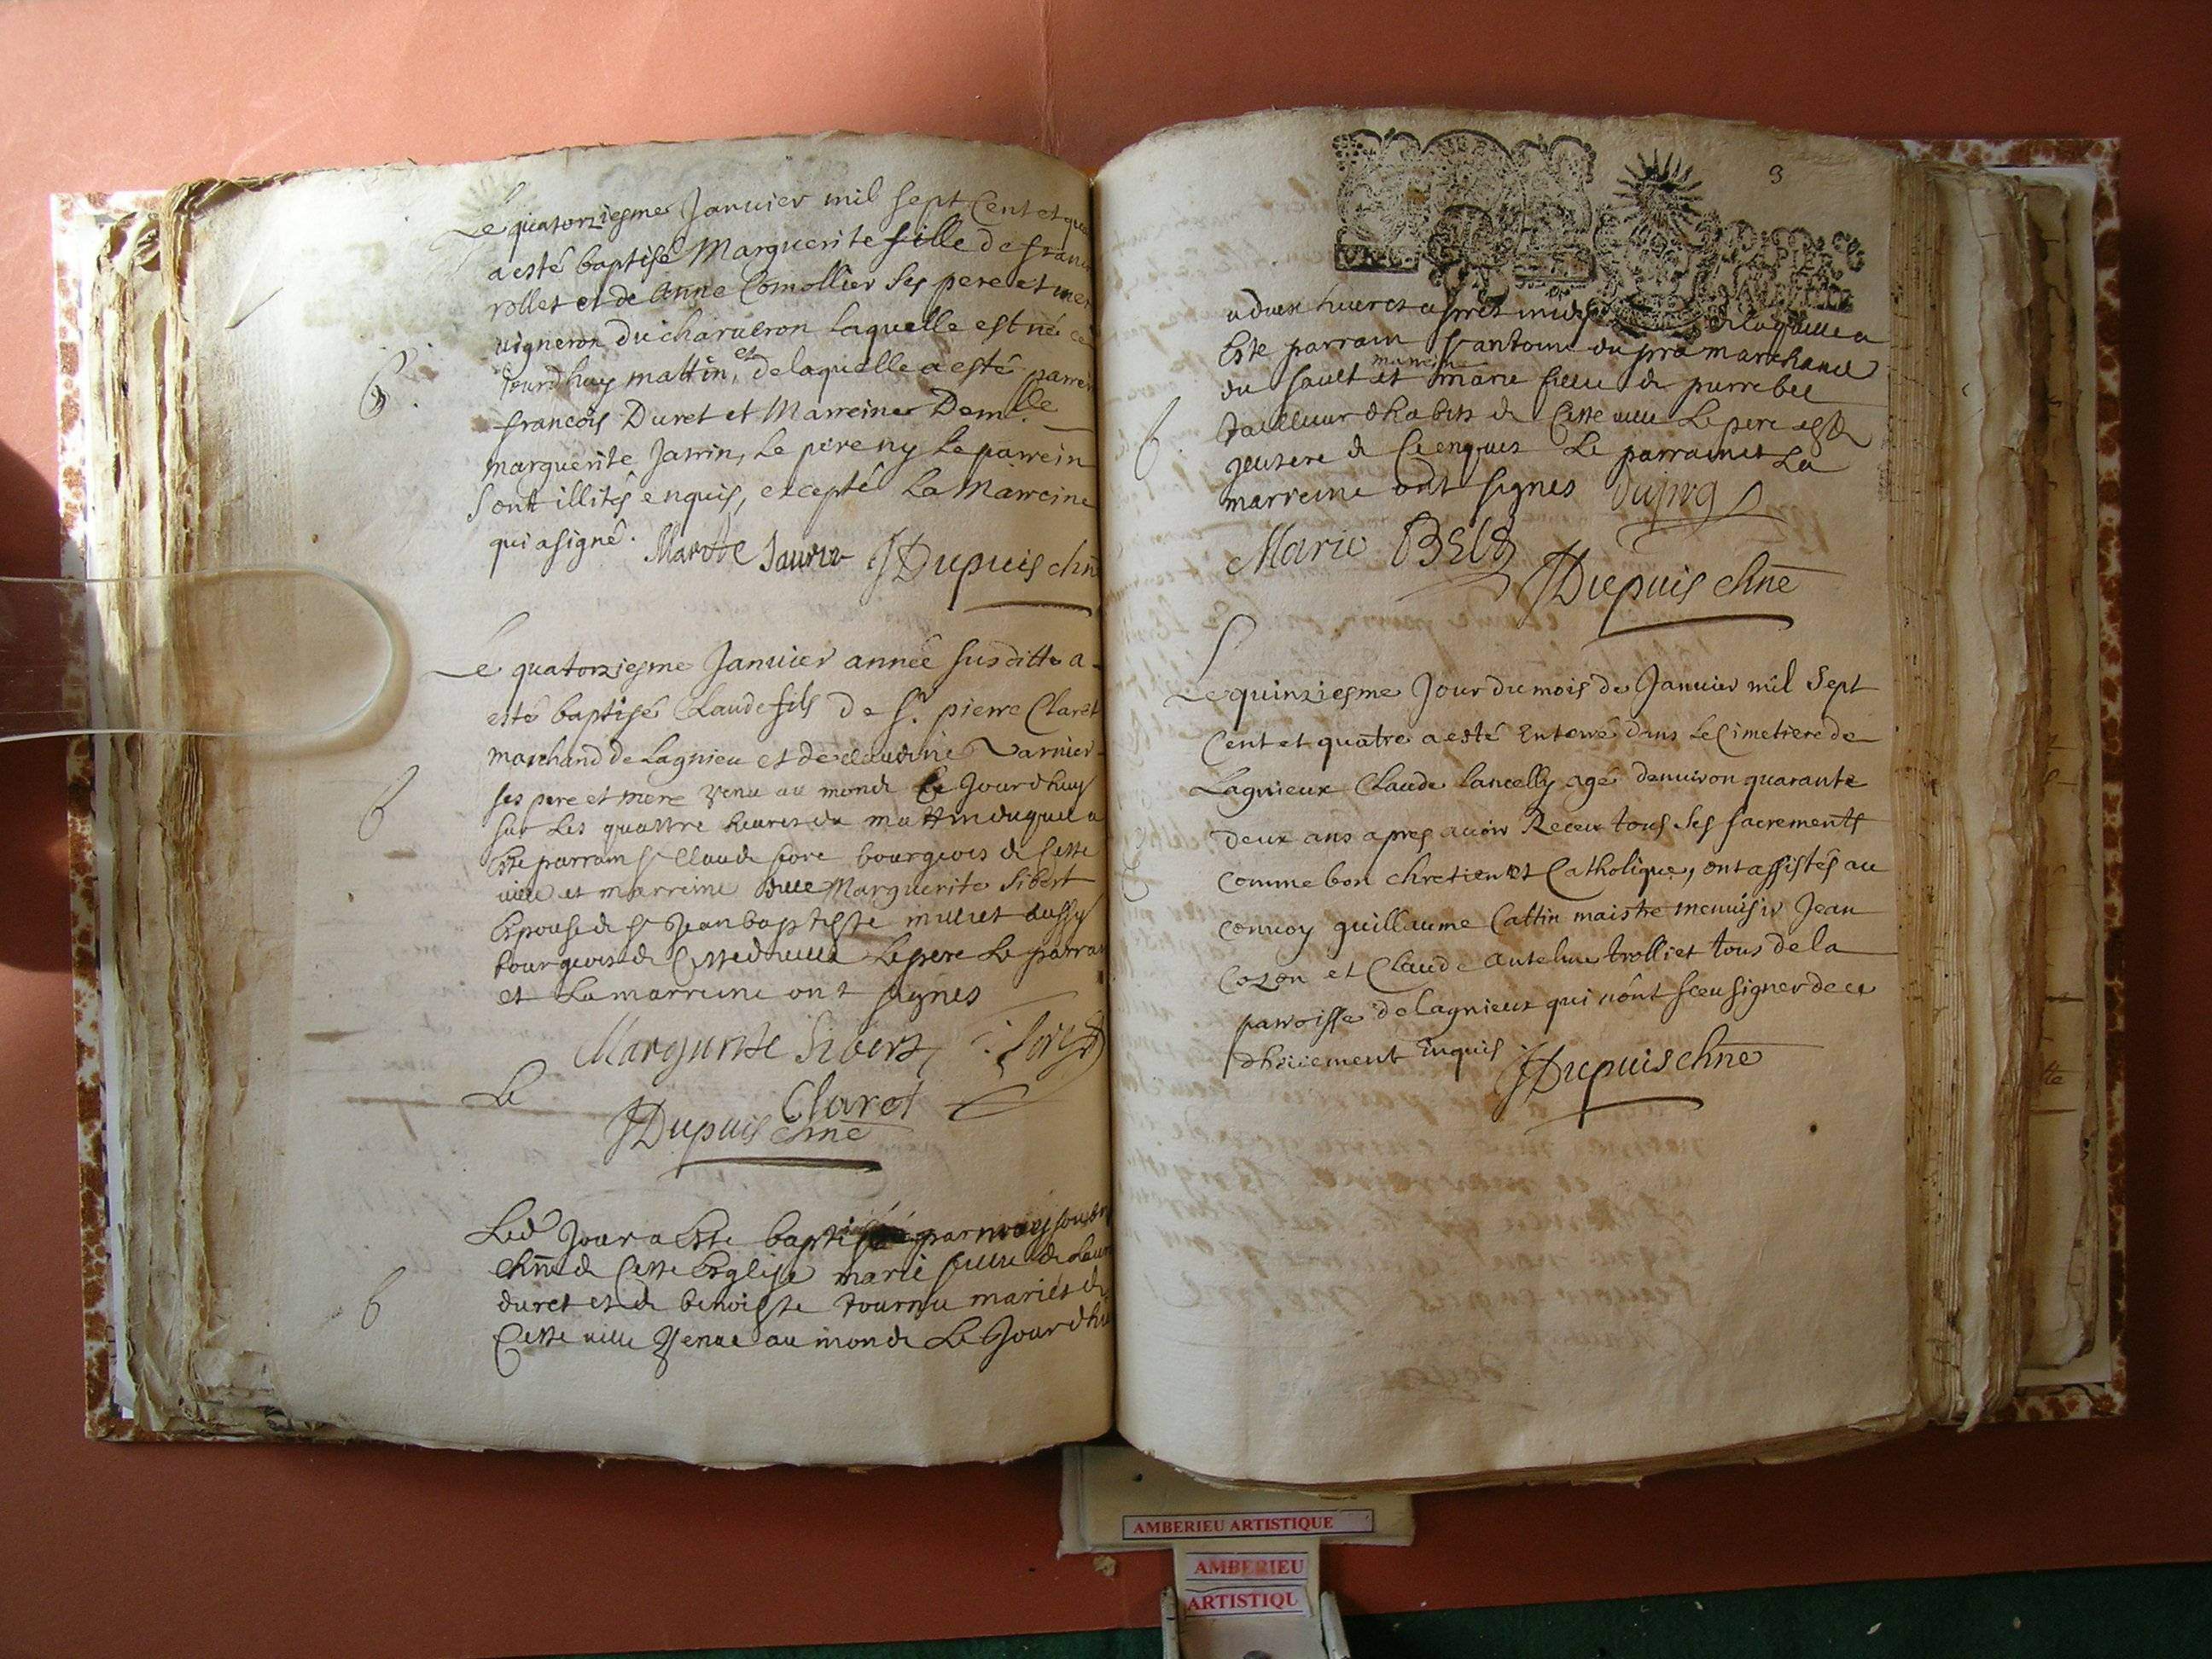 Le quatorziesme Janvier mil sept Cent et
a esté baptisé Marguerite fille de
rollet et de Anne Comollier ses pere et
vigneron du charveron laquelle est né ce
Jourdhuy mattin, et de laquelle a esté parrein
francois Duret et Marreine Demlle
marguerite Jarrin, Le pere ny Le parrein
sont illités enquis, excepté La Marreine
qui a signé. JDupuis chne
Le quatorziesme Janvier année susditte a
esté baptisé Claude fils de Sr. pierre Claret
marchand de Lagnieu et de claudine Varnier
ses pere et mere venu au monde Ce Jourdhuy
sur Les quattre heures du mattin duquel a
este parrain Sr Claude bourgeois de cette
ville et marreine dlle Marguerite Sibert
Epouse de Sr Jean baptiste aussy
bourgeois de Cetted ville Le pere Le parrain
et La marreine ont signes
Marguerite Sibert
Le
Claret
JDupuis chne
B
B
B
Led Jour a Este baptisé par
chne de Cette Eglise marie fille de
duret et de benoiste tournu mariés de
Cette ville venue au monde Le Jourdhuy
3
a deux heures apres midy de laquelle a
Este parrain Sr antoine dupra marchand
du sault et marreine marie fille de pierre bel
tailleur dhabits de Cette ville Le pere est
de Le parrain et La
marreine ont signes dupra
Marie
JDupuis chne
B
Le quinziesme Jour du mois de Janvier mil Sept
Cent et quatre a esté Enterré dans Le Cimetiere de
Lagnieux Claude Lancelly agé denviron quarante
deux ans apres avoir Receu tous Ses sacrements
comme bon chretien et Catholique, ont assistés au
convoy guillaume Cattin maistre menuisir Jean
Cozon et Claude Antelme trolliet tous de la
parroisse de Lagnieux qui nont sceu signer de ce
enquis JDupuis chne
AMBERIEU ARTISTIQUE
AMBERIEU
ARTISTIQU